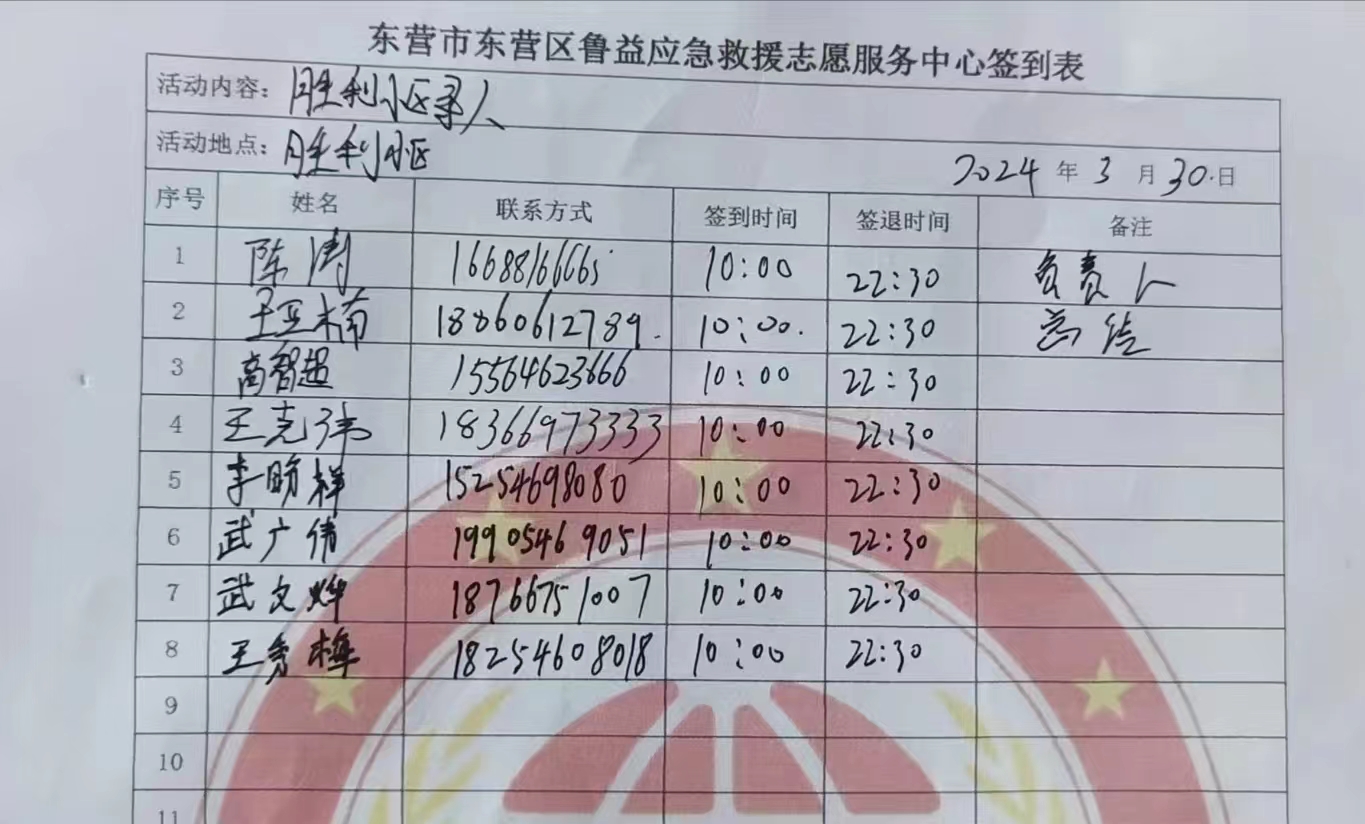 东营市东营区鲁益应急救援志愿服务中心签到表
活动内容：胜利小区寻人
活动地点：胜利小区 2024 年 3 月 30 日
序号 姓名 联系方式 签到时间 签退时间 备注
1 陈涛 16688166665 10:00 22:30 负责人
2 王亚楠 18860612789 10:00 22:30
3 高智超 15564623666 10:00 22:30
4 王克伟 18366973333 10:00 22:30
5 李明祥 15254698080 10:00 22:30
6 武广伟 19905469051 10:00 22:30
7 武文烨 18766751007 10:00 22:30
8 王秀梅 18254608018 10:00 22:30
9
10
11